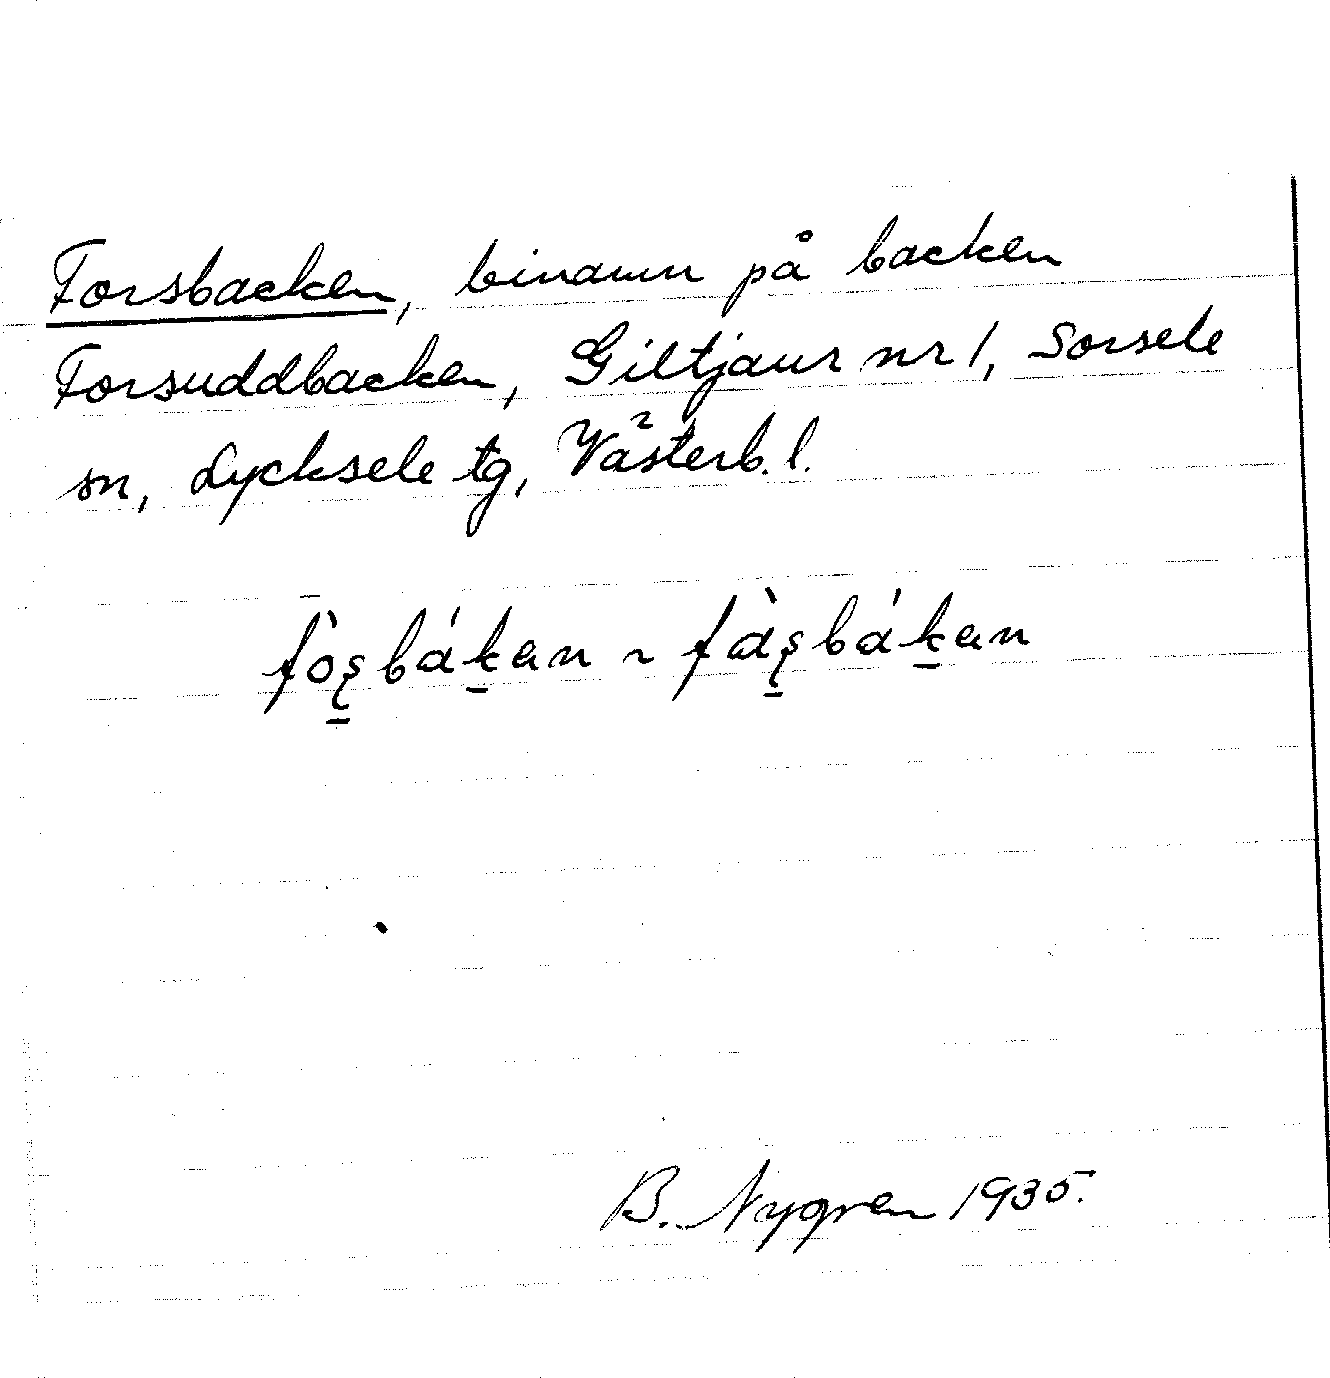 Forsbacken, binamn på backen
Forsuddbacken, Giltjaur nr 1, Sorsele
sn, Lycksele tg, Västerb. l.
fòʂ̠bák̠en ~ fàʂ̠bák̠en
B. Nygren 1935.